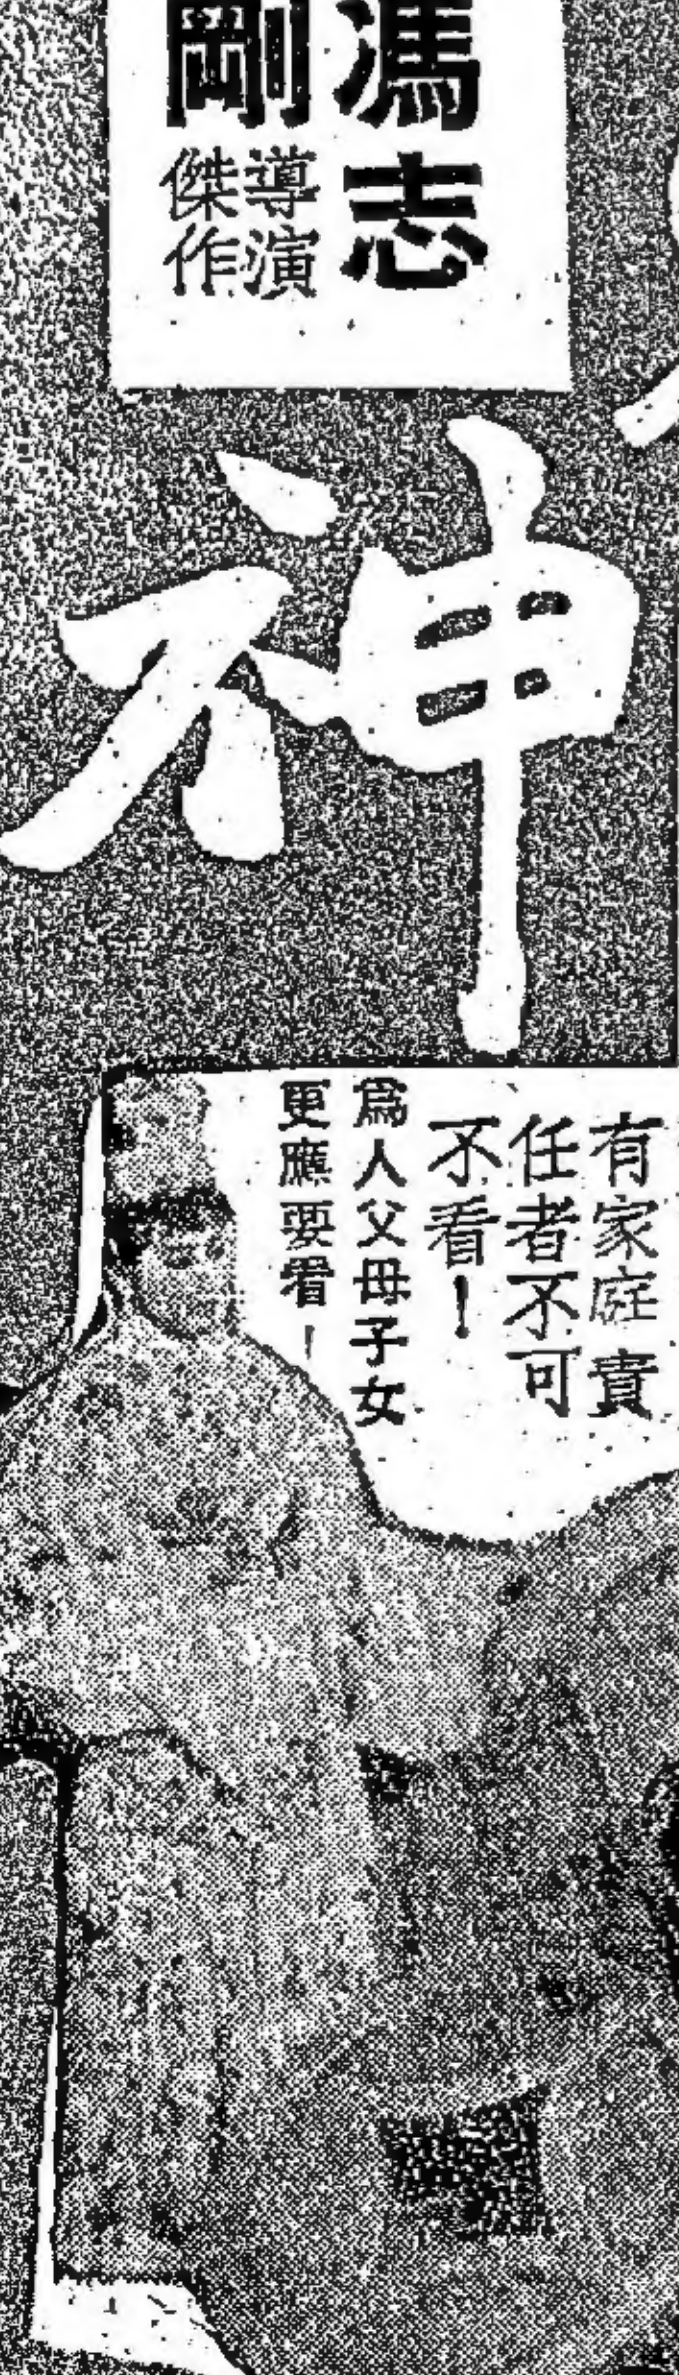 馮志
剛
導演
傑作
神
有家庭責
任者不可
不看！
爲人父母子女
更應要看！